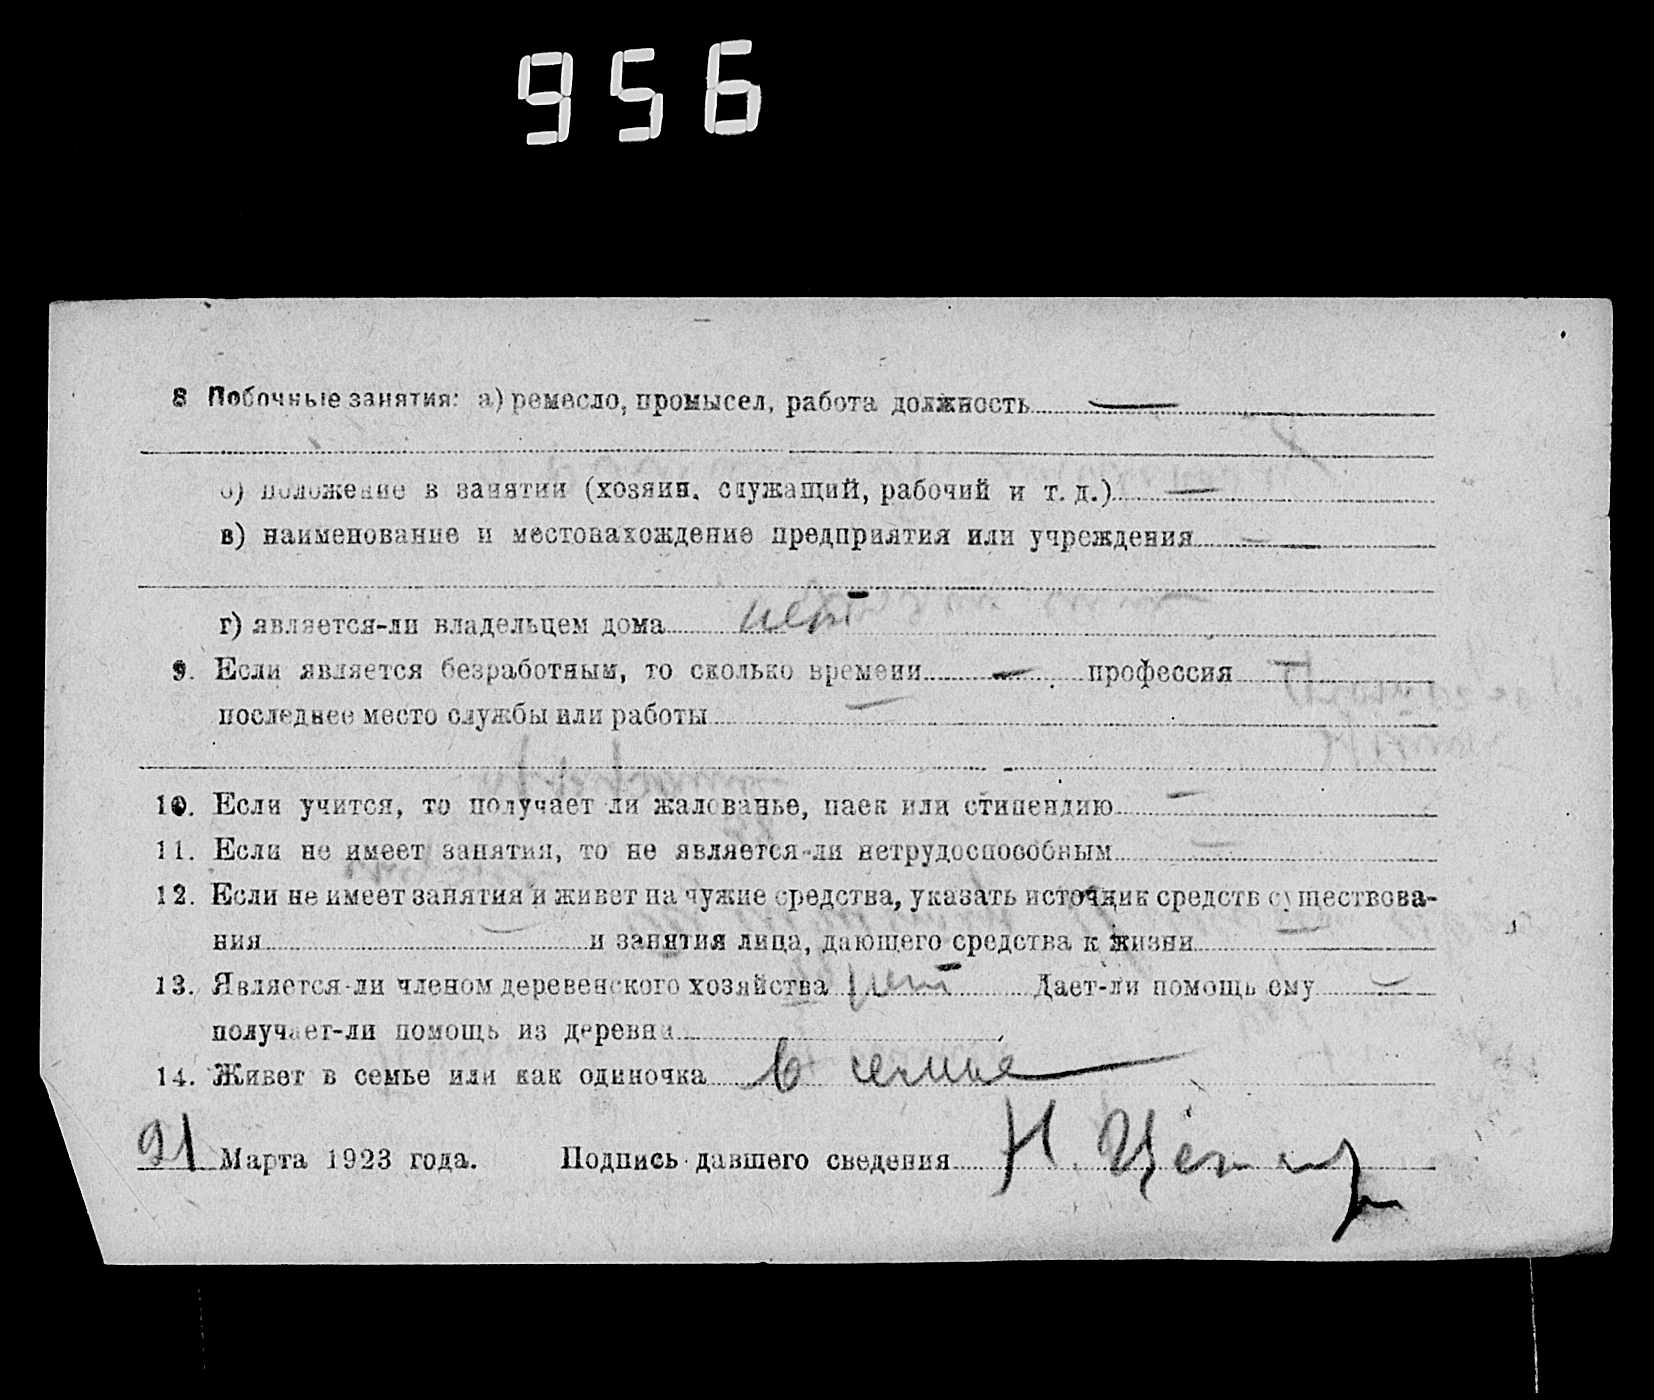 956
8 Побочные занятия: а) ремесло, промысел, работа должность —
б) положение в занятии (хозяин, служащий, рабочий и т. д.) —
в) наименование и местонахождение предприятия или учреждения —
г) является-ли владельцем дома нет
9. Если является безработным, то сколько времени — профессия —
последнее место службы или работы —
10. Если учится, то получает ли жалованье, паек или стипендию —
11. Если не имеет занятия, то не является-ли нетрудоспособным —
12. Если не имеет занятия и живет на чужие средства, указать источник средств существова-
ния — и занятия лица, дающего средства к жизни —
13. Является-ли членом деревенского хозяйства нет Дает-ли помощь ему —
получает-ли помощь из деревни
14. Живет в семье или как одиночка в семье
21 Марта 1923 года. Подпись давшего сведения Н.